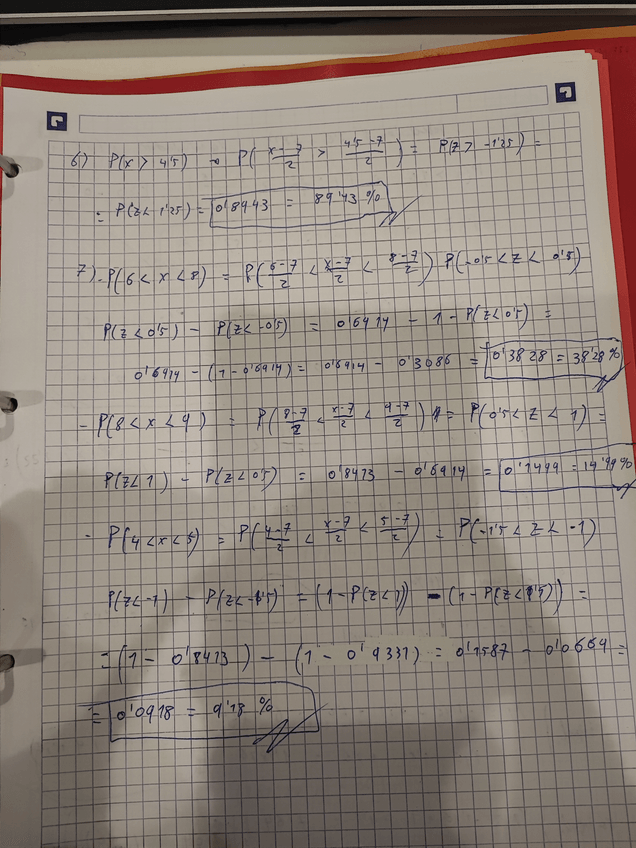 6) P(x > 4'5) → P( x-7/2 > 4'5-7/2 ) = P(z > -1'25) =
= P(z < 1'25) = 0'8943 = 89'43 %
7) - P(6 < x < 8) = P( 6-7/2 < x-7/2 < 8-7/2 ) P(-0'5 < z < 0'5)
P(z < 0'5) - P(z < -0'5) = 0'6914 - 1 - P(z < 0'5) =
0'6914 - (1 - 0'6914) = 0'6914 - 0'3086 = 0'3828 = 38'28 %
- P(8 < x < 9) = P( 8-7/2 < x-7/2 < 9-7/2 ) = P(0'5 < z < 1) =
P(z < 1) - P(z < 0'5) = 0'8413 - 0'6914 = 0'1499 = 14'99 %
- P(4 < x < 5) = P( 4-7/2 < x-7/2 < 5-7/2 ) = P(-1'5 < z < -1)
P(z < -1) - P(z < -1'5) = (1 - P(z < 1)) - (1 - P(z < 1'5)) =
= (1 - 0'8413) - (1 - 0'9331) = 0'1587 - 0'0669 =
= 0'0918 = 9'18 %